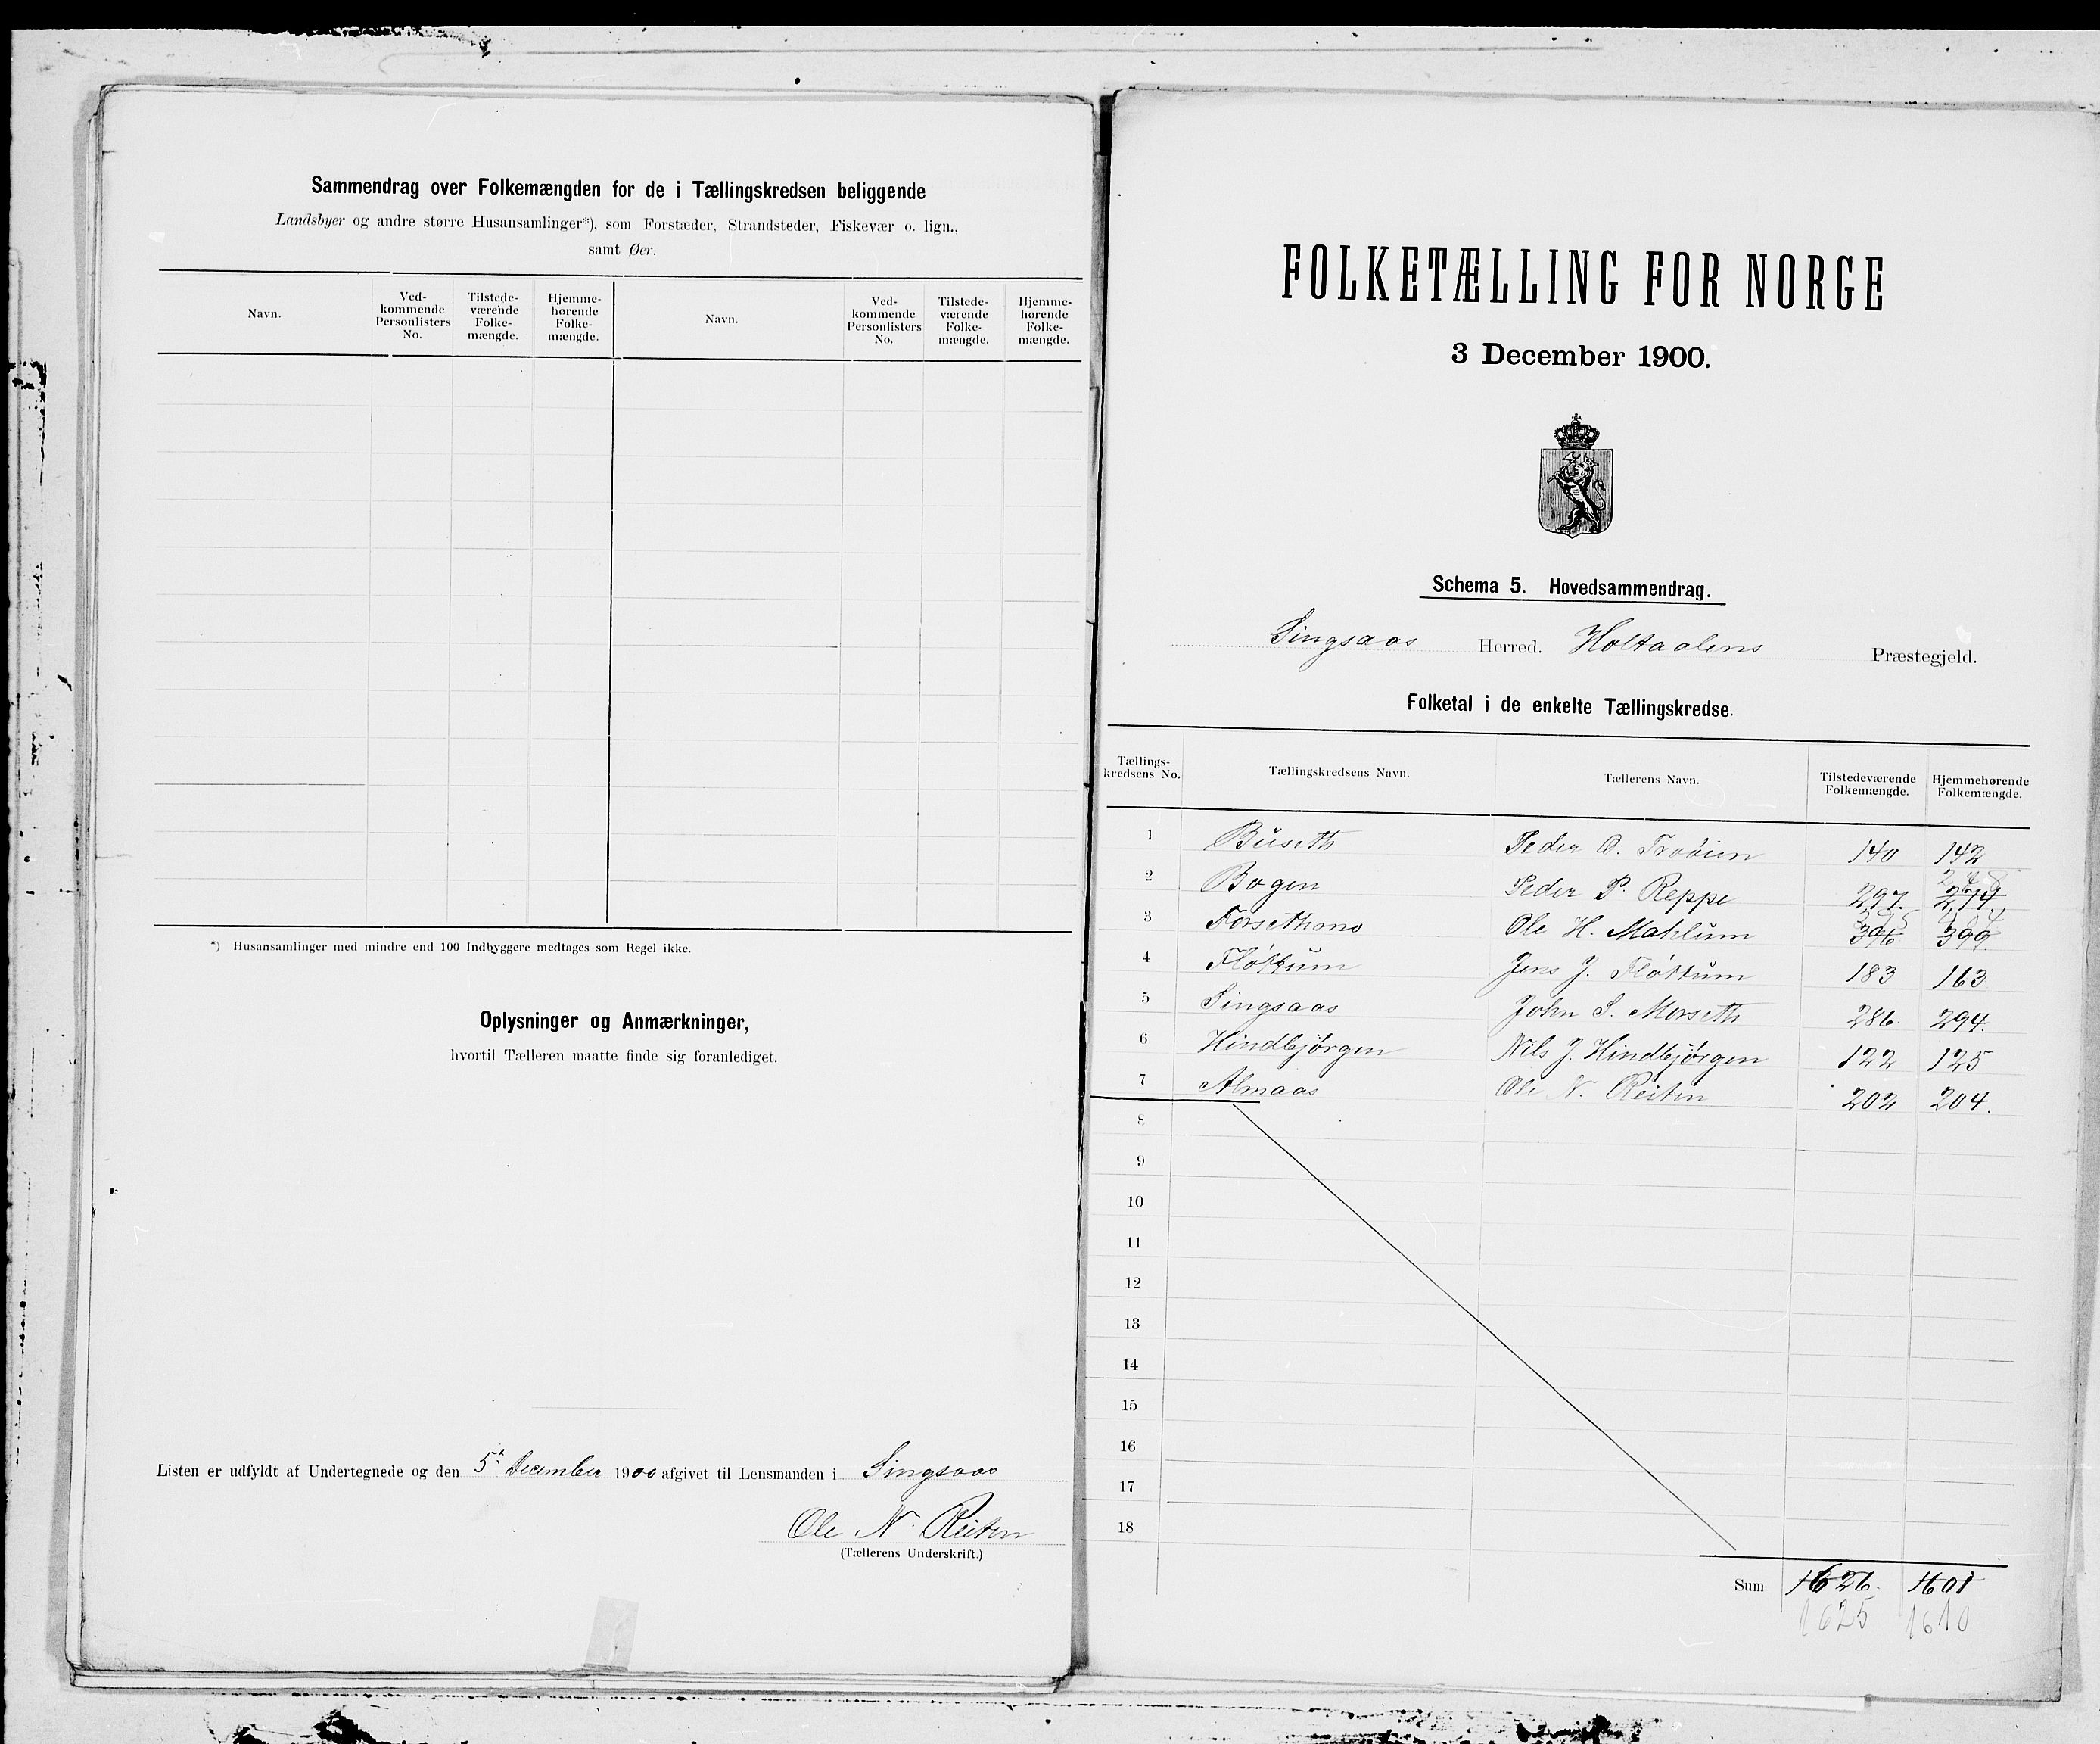 Sammendrag over Folkemængden for de i Tællingskredsen beliggende
Landsbyer og andre større Husansamlinger*), som Forstæder, Strandsteder, Fiskevær o. lign.,
samt Øer.
Navn. Ved-kommende Personlisters No. Tilstede-værende Folke-mængde. Hjemme-hørende Folke-mængde. Navn. Ved-kommende Personlisters No. Tilstede-værende Folke-mængde. Hjemme-hørende Folke-mængde.
*) Husansamlinger med mindre end 100 Indbyggere medtages som Regel ikke.
Oplysninger og Anmærkninger,
hvortil Tælleren maatte finde sig foranlediget.
Listen er udfyldt af Undertegnede og den 5t December 1900 afgivet til Lensmanden i Singsaas
Ole N. Reiten
(Tællerens Underskrift.)
FOLKETÆLLING FOR NORGE
3 December 1900.
Schema 5. Hovedsammendrag.
Singsaas Herred. Holtaalens Præstegjeld.
Folketal i de enkelte Tællingskredse.
Tællings-kredsens No. Tællingskredsens Navn. Tællerens Navn. Tilstedeværende Folkemængde. Hjemmehørende Folkemængde.
1 Buseth Peder O. Trøøien 140 142
278
2 Bogen Peder P. Reppe 297. 274
395 404
3 Forsethmo Ole H. Mahlum 396 399
4 Fløttum Jens J. Fløttum 183 163
5 Singsaas John S. Morseth 286. 294.
6 Hindbjørgen Nils J. Hindbjørgen 122 125
7 Almaas Ole N. Reiten 202 204.
8
9
10
11
12
13
14
15
16
17
18
Sum 1626. 1601
1625 1610